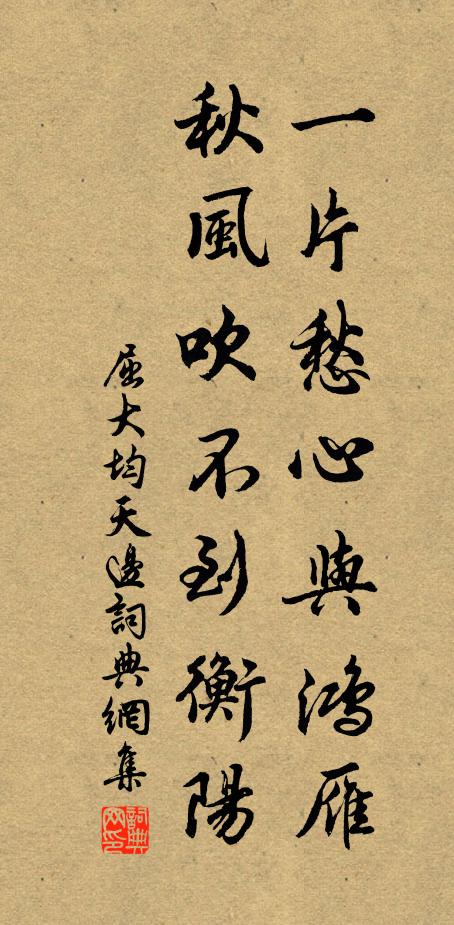 一片愁心與鴻雁
秋風吹不到衡陽
屈大均天邊詞典網集
詞典网印